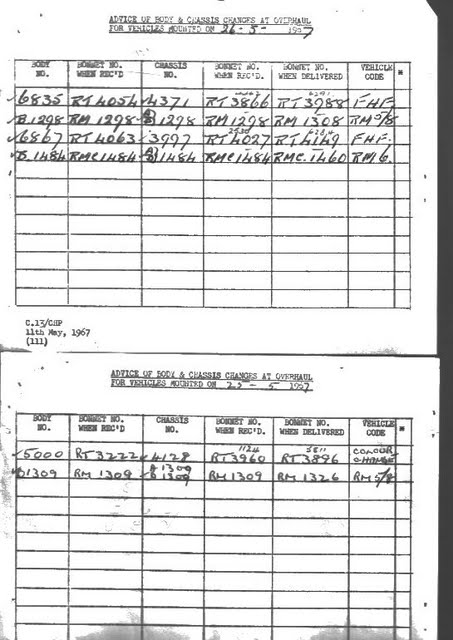 ADVICE OF BODY & CHASSIS CHANGES AT OVERHAUL
FOR VEHICLES MOUNTED ON 26 - 5 - 1967
BODY NO. BONNET NO. WHEN REC'D CHASSIS NO. BONNET NO. WHEN REC'D. BONNET NO. WHEN DELIVERED VEHICLE CODE *
6835 RT4054 4371 RT3866 RT3988 FHF.
B.1298 RM 1298 B 1298 RM 1298 RM 1308 RM 5/8
6867 RT4063 3997 RT4027 RT4149 FHF.
B.1484 RMC1484 B 1484 RMC1484 RMC.1460 RM6.
C.13/CHP
11th May, 1967
(111)
ADVICE OF BODY & CHASSIS CHANGES AT OVERHAUL
FOR VEHICLES MOUNTED ON 25 - 5 1967
BODY NO. BONNET NO. WHEN REC'D CHASSIS NO. BONNET NO. WHEN REC'D. BONNET NO. WHEN DELIVERED VEHICLE CODE *
1124 3811
5000 RT3222 4128 RT3960 RT3896 COLOUR CHANGE
A 1309
B1309 RM 1309 B 1309 RM1309 RM 1326 RM 5/8